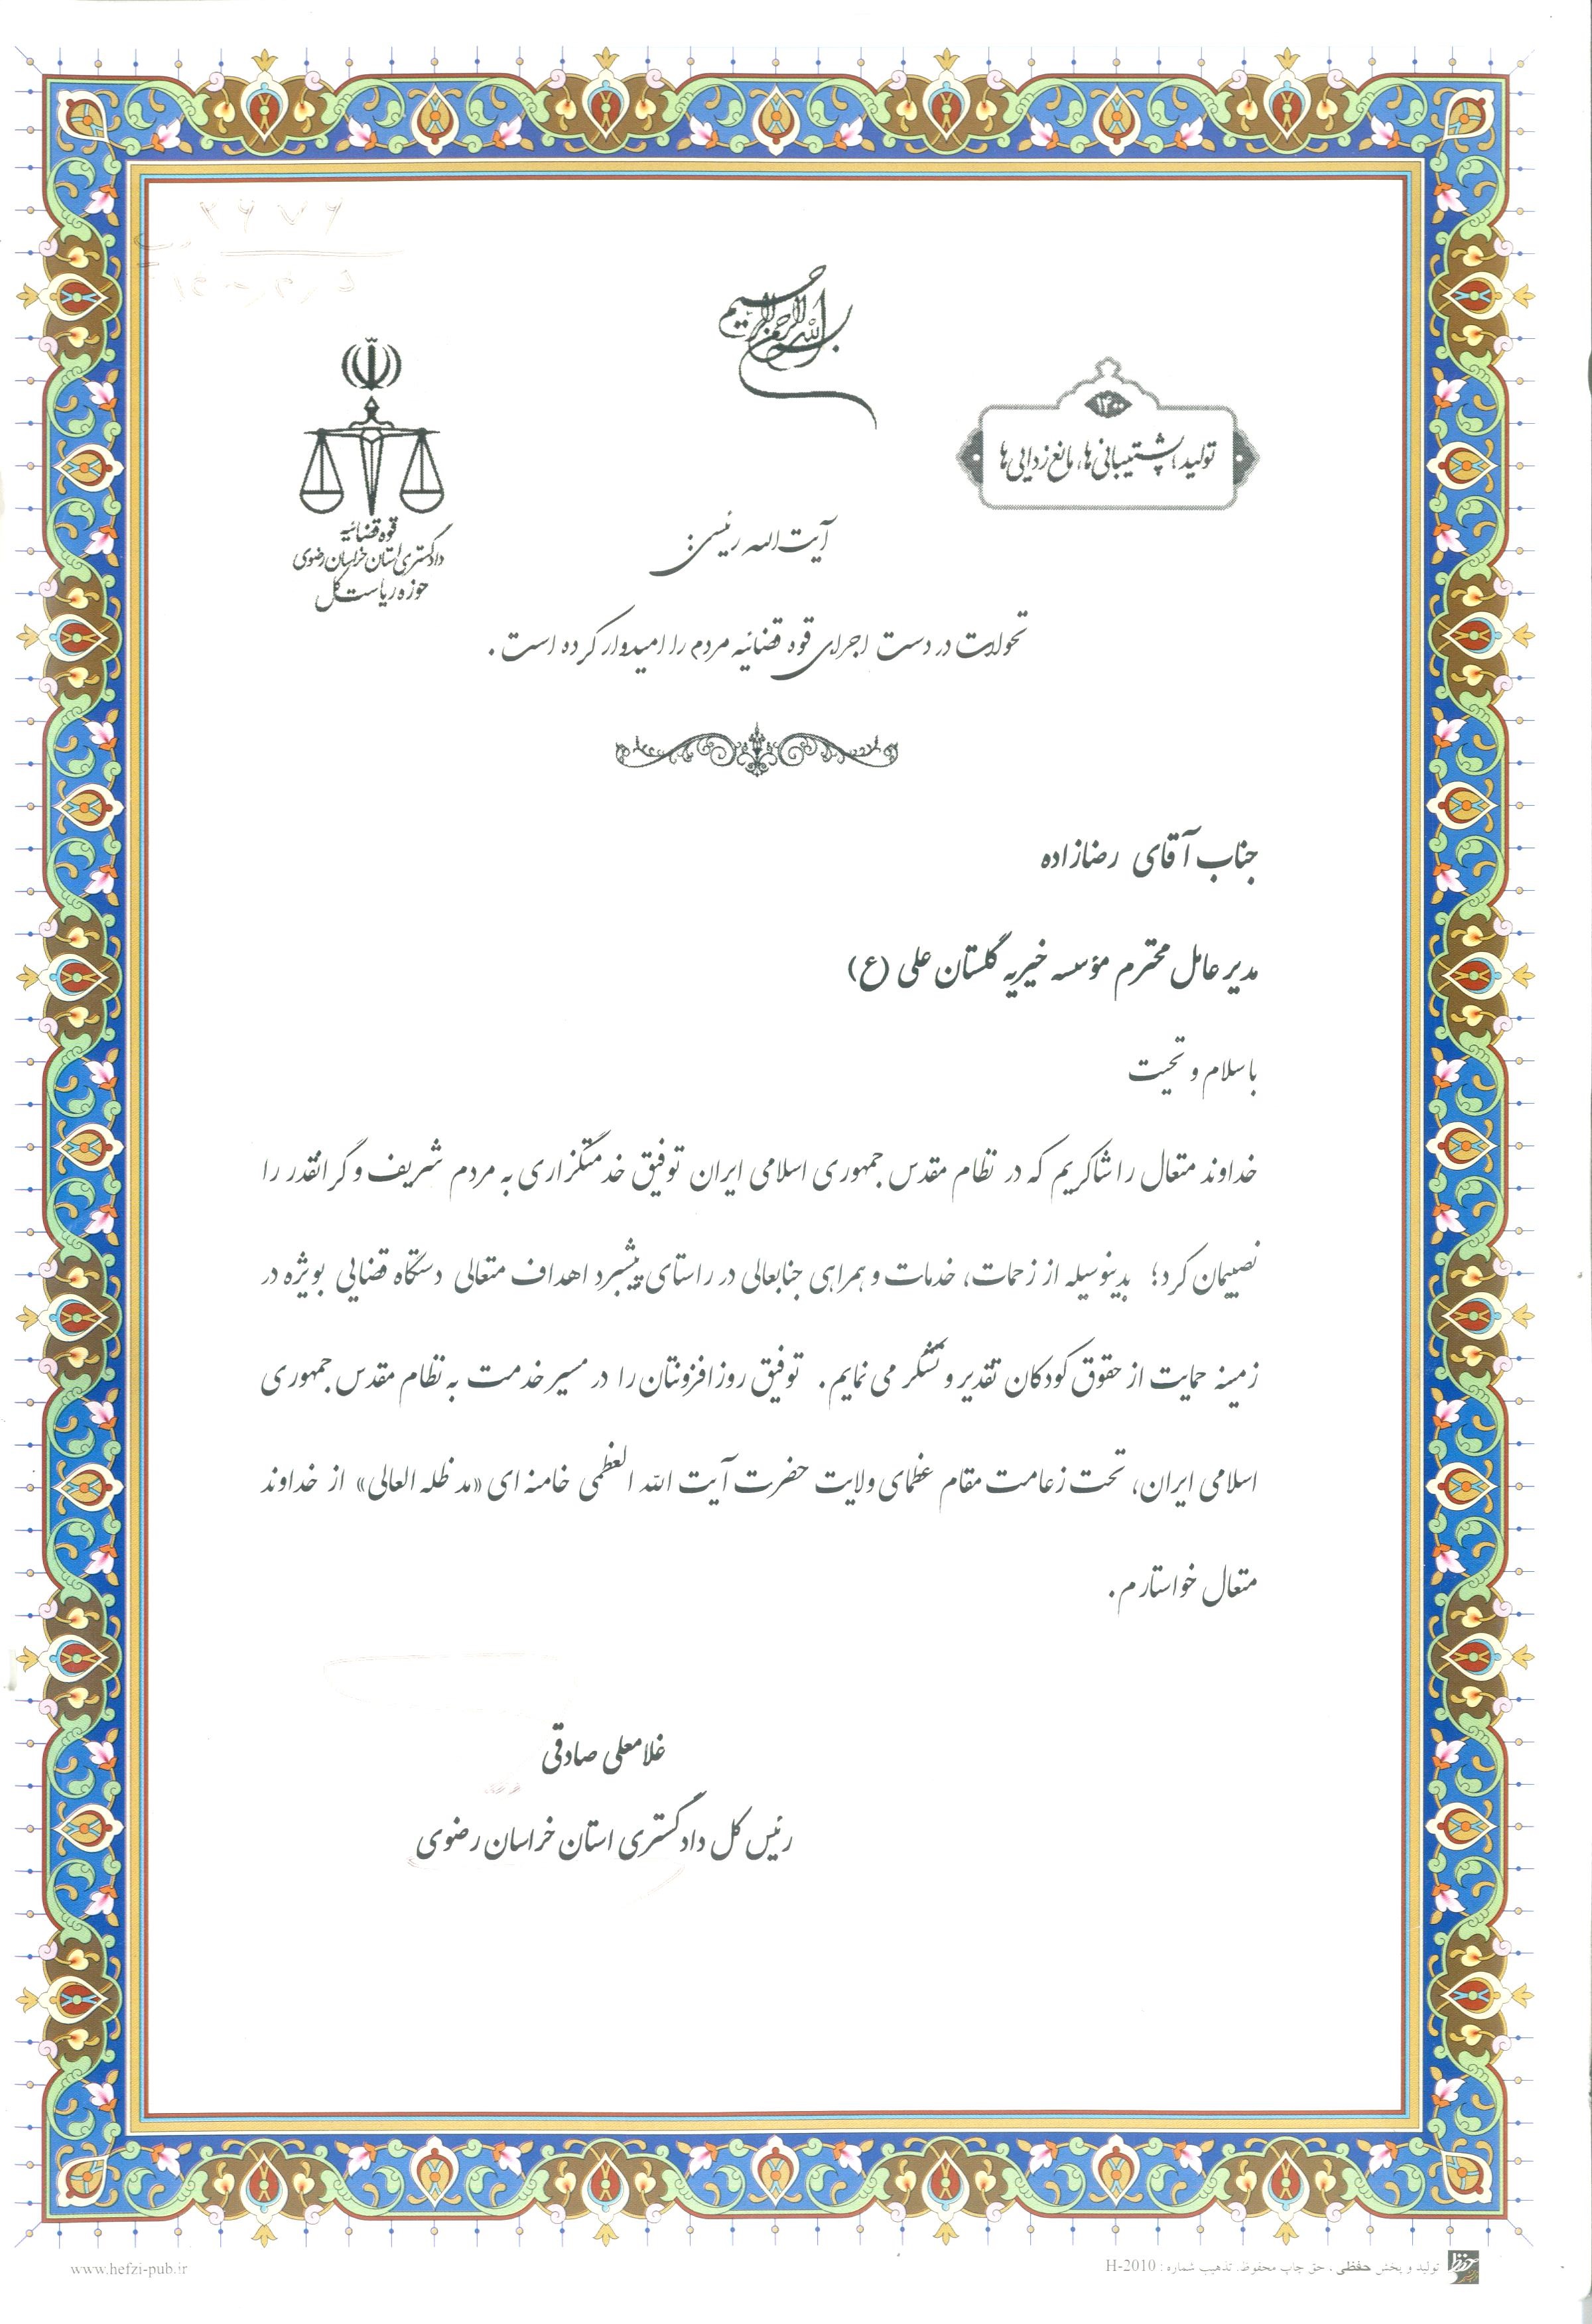 بسم الله الرحمن الرحیم
۱۴۰۰
تولید؛ پشتیبانی‌ها، مانع‌زدایی‌ها
قوه قضائیه
دادگستری استان خراسان رضوی
حوزه ریاست کل
آیت‌الله رئیسی:
تحولات در دست اجرای قوه قضائیه مردم را امیدوار کرده است.
جناب آقای رضازاده
مدیر عامل محترم مؤسسه خیریه گلستان علی (ع)
با سلام و تحیت
خداوند متعال را شاکریم که در نظام مقدس جمهوری اسلامی ایران توفیق خدمتگزاری به مردم شریف و گرانقدر را
نصیبمان کرد؛ بدینوسیله از زحمات، خدمات و همراهی جنابعالی در راستای پیشبرد اهداف متعالی دستگاه قضایی بویژه در
زمینه حمایت از حقوق کودکان تقدیر و تشکر می نمایم. توفیق روز افزونتان را در مسیر خدمت به نظام مقدس جمهوری
اسلامی ایران، تحت زعامت مقام عظمای ولایت حضرت آیت الله العظمی خامنه ای «مد ظله العالی» از خداوند
متعال خواستارم.
غلامعلی صادقی
رئیس کل دادگستری استان خراسان رضوی
تولید و پخش حفظی، حق چاپ محفوظ، تذهیب شماره: H-2010
www.hefzi-pub.ir